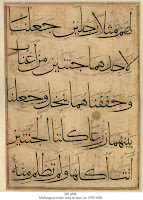 لهم مثلا رجلين جعلنا
لأحدهما جنتين من أعناب
وحففناهما بنخل وجعلنا
بينهما زرعا كلتا الجنتين
آتت أكلها ولم تظلم منه
Muhaqqaq script, Iraq or Iran, ca.